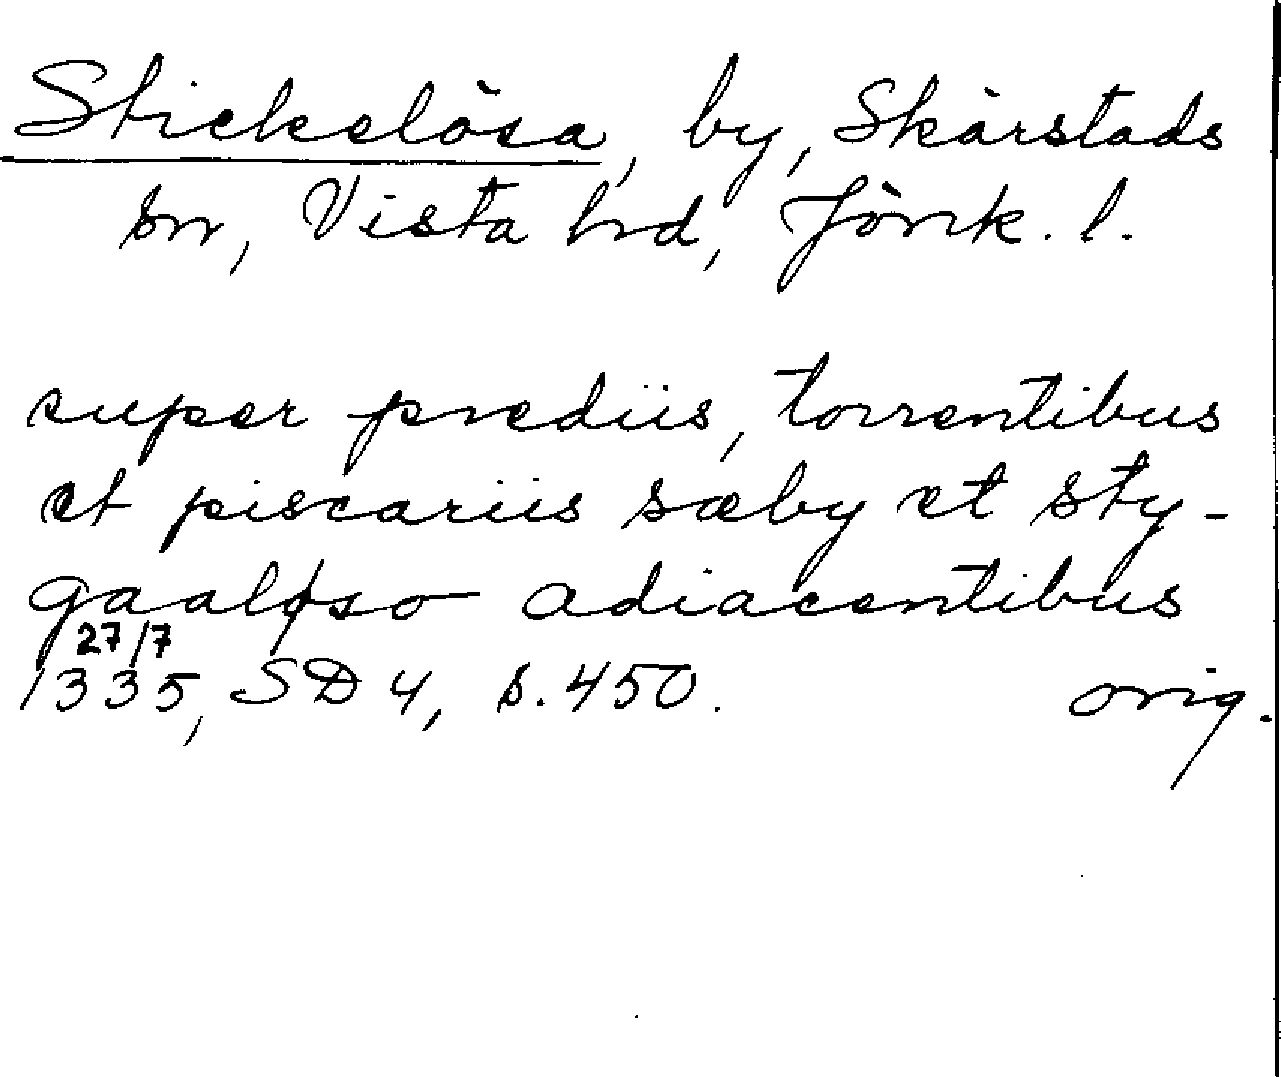 Stickelösa, by, Skärstads
sn, Vista hrd, Jönk. l.
super prediis, torrentibus
et piscariis sæby et sty-
gaaløso adiacentibus
27/7
1335, SD 4, s. 450. orig.